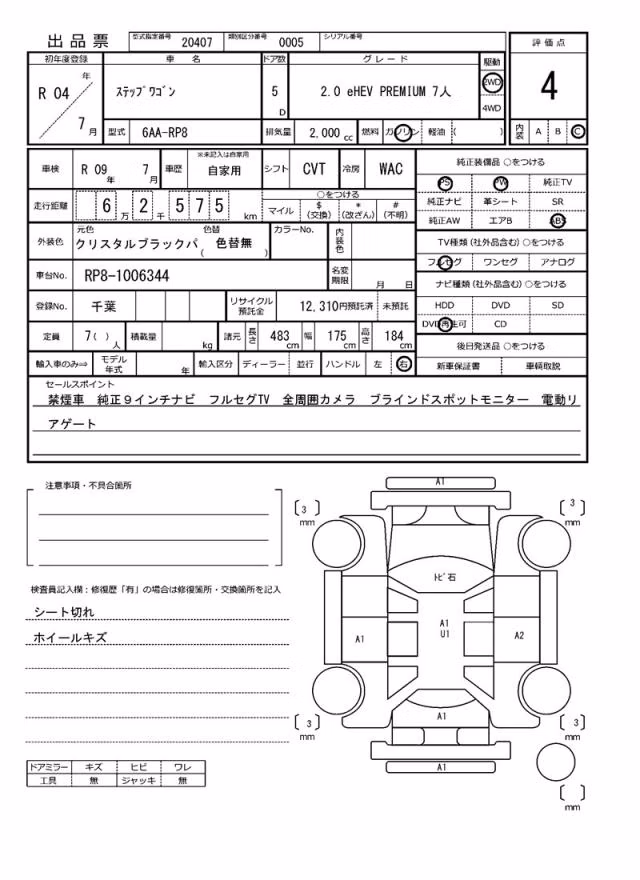 出品票 型式指定番号 20407 類別区分番号 0005 シリアル番号
初年度登録 車名 ドア数 グレード 駆動 評価点
R 04 年 7 月 ｽﾃｯﾌﾟﾜｺﾞﾝ 5 D 2.0 eHEV PREMIUM 7人 2WD 4WD 4
型式 6AA-RP8 排気量 2,000 cc 燃料 ガソリン 軽油 ( ) 内装 A B C
車検 R 09 年 7 月 車歴 ※未記入は自家用 自家用 シフト CVT 冷房 WAC
走行距離 6 万 2 千 5 7 5 km ○をつける マイル $ (交換) * (改ざん) # (不明)
外装色 元色 クリスタルブラックパ 色替 ( 色替無 ) カラーNo. 内装色
車台No. RP8-1006344 名変期限 月 日
登録No. 千葉 リサイクル預託金 12,310円預託済 未預託
定員 7( ) 人 積載量 kg 諸元 長さ 483 cm 幅 175 cm 高さ 184 cm
輸入車のみ⇨ モデル年式 年 輸入区分 ディーラー 並行 ハンドル 左 右
純正装備品 ○をつける
PS PW 純正TV
純正ナビ 革シート SR
純正AW エアB ABS
TV種類 (社外品含む) ○をつける
フルセグ ワンセグ アナログ
ナビ種類 (社外品含む) ○をつける
HDD DVD SD
DVD再生可 CD
後日発送品 ○をつける
新車保証書 車輌取説
セールスポイント
禁煙車 純正９インチナビ フルセグTV 全周囲カメラ ブラインドスポットモニター 電動リ
アゲート
注意事項・不具合箇所
検査員記入欄：修復歴「有」の場合は修復箇所・交換箇所を記入
シート切れ
ホイールキズ
ドアミラー キズ ヒビ ワレ
工具 無 ジャッキ 無
A1
3 mm
3 mm
ﾄﾋﾞ石
A1
A1
U1
A2
A1
3 mm
3 mm
A1
mm